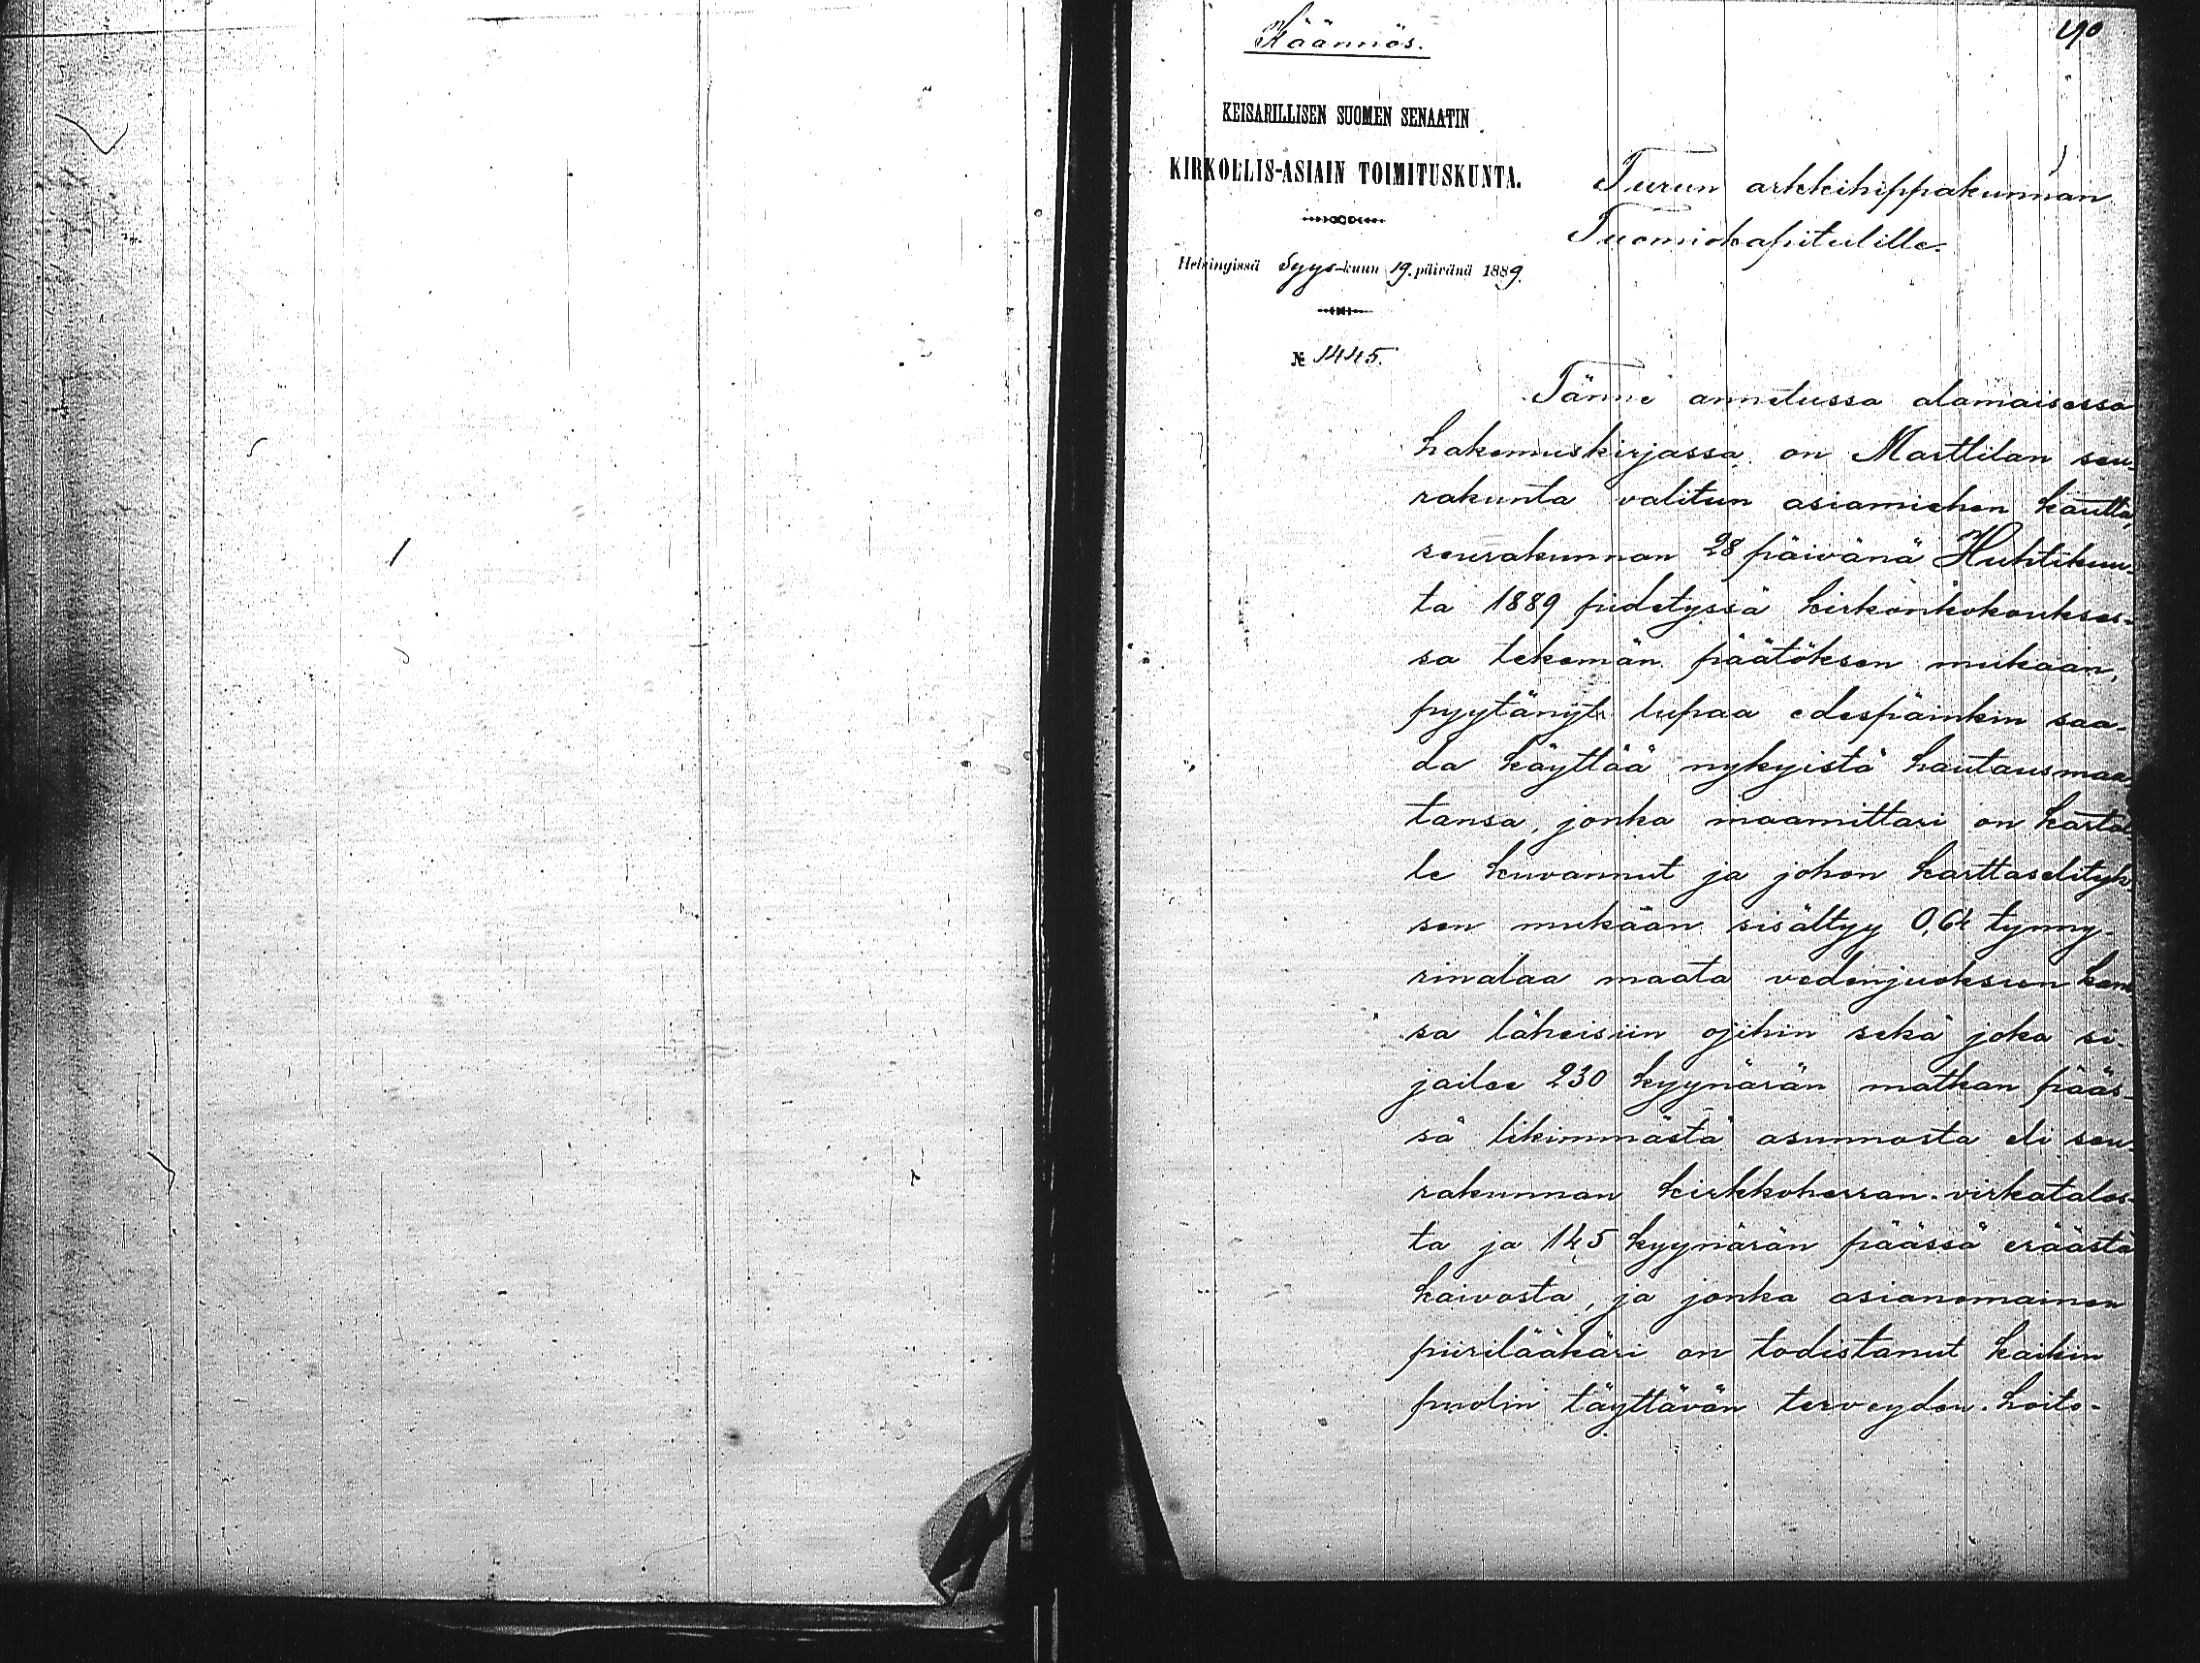 Käännös.
190
KEISARILLISEN SUOMEN SENAATIN
KIRKOLLIS-ASIAIN TOIMITUSKUNTA.
Helsingissä Syys-kuun 19. päivänä 1889.
№ 1445.
Turun arkkihippakunnan
Tuomiokapitulille.
Tänne annetussa alamaisessa
hakemuskirjassa on Marttilan seu-
rakunta valitun asiamiehen kautta,
seurakunnan 28 päivänä Huhtikuu-
ta 1889 pidetyssä kirkonkokoukses-
sa tekemän päätöksen mukaan,
pyytänyt lupaa edespäinkin saa-
da käyttää nykyistä hautausmaa-
tansa, jonka maamittari on kartal
le kuvannut ja johon karttaselityk-
sen mukaan sisältyy 0,64 tynny-
rinalaa maata vedenjuoksun kans
sa läheisiin ojihin sekä joka si-
jailee 230 kyynärän matkan pääs-
sä likimmästä asunnosta eli seu-
rakunnan kirkkoherran-virkatalos-
ta ja 145 kyynärän päässä eräästä
kaivosta, ja jonka asianomainen
piirilääkäri on todistanut kaikin
puolin täyttävän terveyden-hoito-